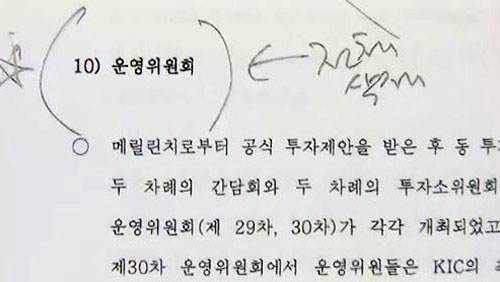 10) 운영위원회
삭제
○ 메릴린치로부터 공식 투자제안을 받은 후 동 투
두 차례의 간담회와 두 차례의 투자소위원회
운영위원회(제 29차, 30차)가 각각 개최되었고
제30차 운영위원회에서 운영위원들은 KIC의